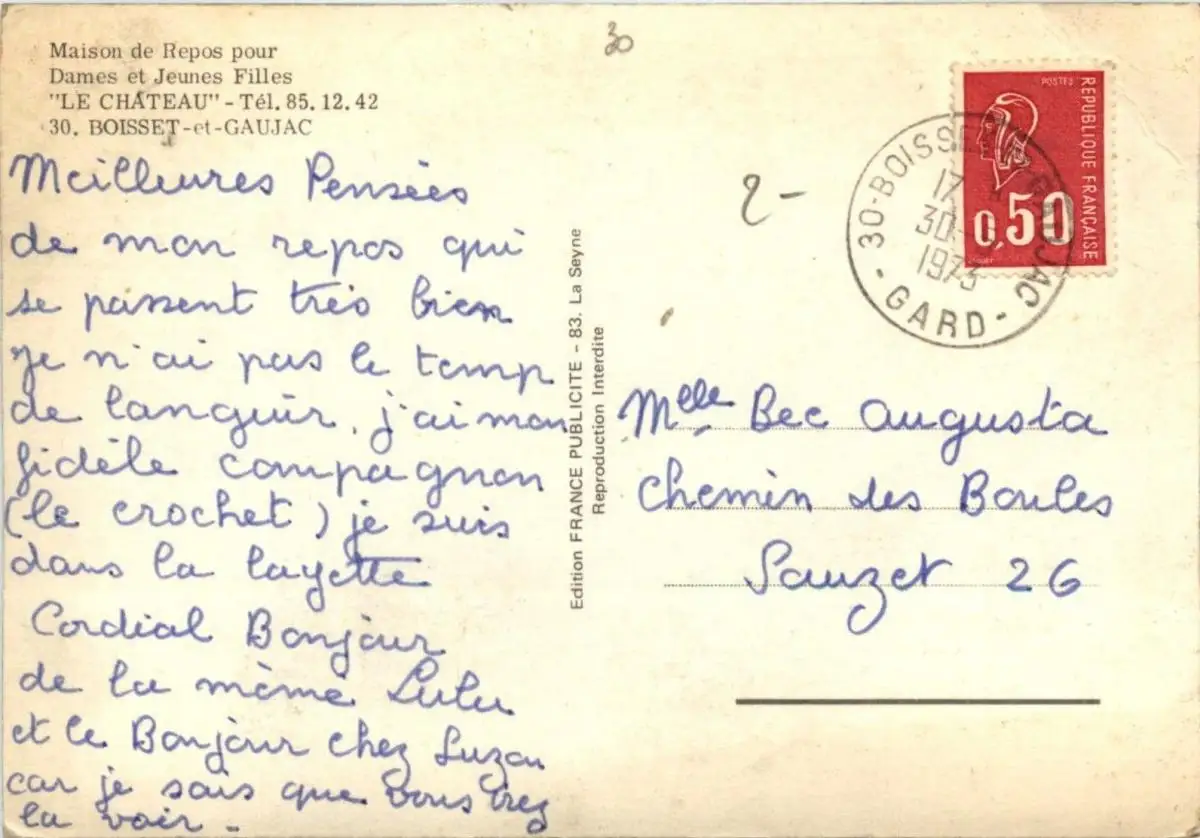 Maison de Repos pour
Dames et Jeunes Filles
"LE CHÂTEAU" - Tél. 85.12.42
30. BOISSET-et-GAUJAC
Meilleures Pensées
de mon repos qui
se passent très bien
je n'ai pas le temp
de languir, j'ai mon
fidèle compagnon
(le crochet) je suis
dans la layette
Cordial Bonjour
de la même Lulu
et le Bonjour chez Luzon
car je sais que vous irez
la voir -
Edition FRANCE PUBLICITE - 83. La Seyne
Reproduction Interdite
30
2-
POSTES
REPUBLIQUE FRANÇAISE
0,50
30-BOISSET GAUJAC
17
30-
1973
- GARD -
Melle Bec Augusta
Chemin des Boules
Sauzet 26